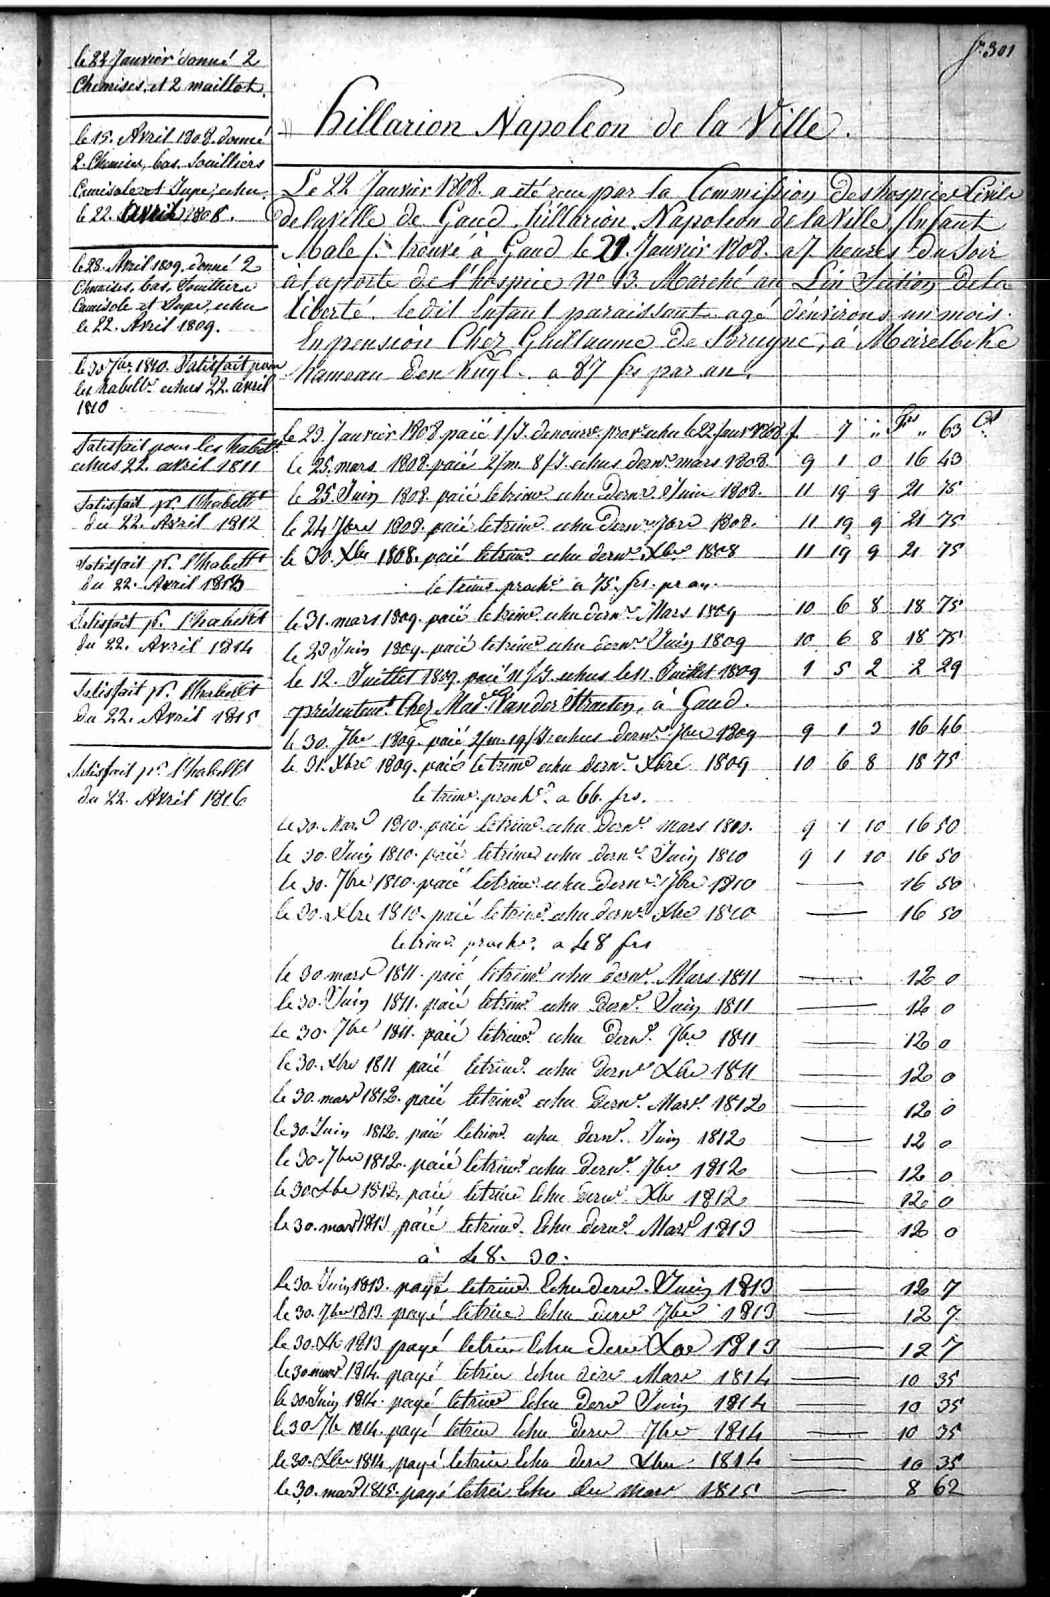 fo. 301
le 22 Janvier donné 2
Chemises, et 2 maillot.
le 15. Avril 1808. donné
2. Chemises, bas. Souilliers
Camisole et Jupe, echu
le 22. avril 1808.
le 28. Avril 1809. donné 2
Chemises, bas. Souilliers
Camisole et Jupe, echu
le 22. Avril 1809.
le 30 7bre 1810. Satisfait pour
les habillts echus 22. avril
1810
Satisfait pour les habillt
echus 22. avril 1811
Satisfait pr. l'habillt
du 22. Avril 1812
Satisfait pr. l'habillt
du 22. Avril 1813
Satisfait pr. l'habillt
du 22. Avril 1814
Satisfait pr. l'habillt
du 22. Avril 1815
Satisfait pr. l'habillt
du 22. Avril 1816
hillarion Napoleon de la Ville.
Le 22 Janvier 1808. a été recu par la Commission des hospices Civils
de la ville de Gand, hillarion Napoleon de la Ville, Enfant
Male trouvé à Gand le 21. Janvier 1808. a 7 heures du Soir
à la porte de l'hospice no 13. Marché au Lin Section de la
liberté. ledit Enfant paraissant agé d'environs un mois.
En pension Chez Guillaume De Bruyne, à Meirelbeke
hameau den Kuyl. a 87 frs par an.
le 23. Janvier 1808 paié 1/J. echu le 22 Janr 1808 f 7 " frs " 63 Cs
le 25. mars 1808. paié 2/m. 8/J. echus dernr. mars 1808. 9 1 0 16 43
le 25. Juin 1808. paié letrimr. echu dernr. Juin 1808. 11 19 9 21 75
le 24 7bre 1808. paié letrimr. echu dernr. 7bre 1808. 11 19 9 21 75
le 30. Xbre 1808. paié letrimr. echu dernr. Xbre 1808 11 19 9 21 75
letrimr prochr. a 75. frs. pr an.
le 31. mars 1809. paié letrimr. echu dernr. Mars 1809 10 6 8 18 75
le 28 Juin 1809. paié letrimr. echu dernr. Juin 1809 10 6 8 18 75
le 12. Juillet 1809. paié 11/J. echus le 11. Juillet 1809 1 5 2 2 29
présentemt. Chez Made. Vander Straeten, à Gand.
le 30. 7bre 1809. paié 2/m. 19/J. echus dernr. 7bre 1809 9 1 3 16 46
le 31. Xbre 1809. paié letrimr. echu dernr. Xbre 1809 10 6 8 18 75
le trimr. prochr. a 66. frs.
le 30. Mars 1810. paié letrimr. echu dernr. mars 1810. 9 1 10 16 50
le 30. Juin 1810. paié letrimr echu dernr. Juin 1810 9 1 10 16 50
le 30. 7bre 1810. paié letrimr. echu dernr. 7bre 1810 — 16 50
le 30. Xbre 1810. paié letrimr. echu dernr. Xbre 1810 — 16 50
letrimr prochr. a 48 frs
le 30 mars 1811. paié letrimr echu dernr. Mars. 1811 — 12 0
le 30. Juin 1811. paié letrimr. echu dernr. Juin 1811 — 12 0
le 30. 7bre 1811. paié letrimr. echu dernr. 7bre 1811 — 12 0
le 30. Xbre 1811 paié letrimr. echu dernr. Xbre 1811 — 12 0
le 30. mars 1812. paié letrimr. echu dernr. Mars. 1812 — 12 0
le 30. Juin 1812. paié letrimr. echu dernr. Juin 1812 — 12 0
le 30. 7bre 1812. paié letrimr. echu dernr. 7bre 1812 — 12 0
le 30. Xbre 1812. paié letrimr Echu dernr. Xbre 1812 — 12 0
le 30. mars 1813 paié letrimr. Echu dernr. Mars 1813 — 12 0
à 48. 30.
le 30 Juin 1813. payé letrimr. Echu dernr. Juin 1813 — 12 7
le 30. 7bre 1813. payé letrimr Echu dernr 7bre 1813 — 12 7
le 30. Xbr 1813 payé letrimr Echu dernr Xbre 1813 — 12 7
le 30 mars 1814. payé letrimr échu dernr Mars 1814 — 10 35
le 30 Juin 1814. payé letrimr Echu dernr Juin 1814 — 10 35
le 30 7br 1814. payé letrimr Echu dernr 7bre 1814 — 10 35
le 30. Xbre 1814. payé letrimr Echu dernr Xbre 1814 — 10 35
le 30. mars 1815. payé letrimr Echu der mars 1815 — 8 62